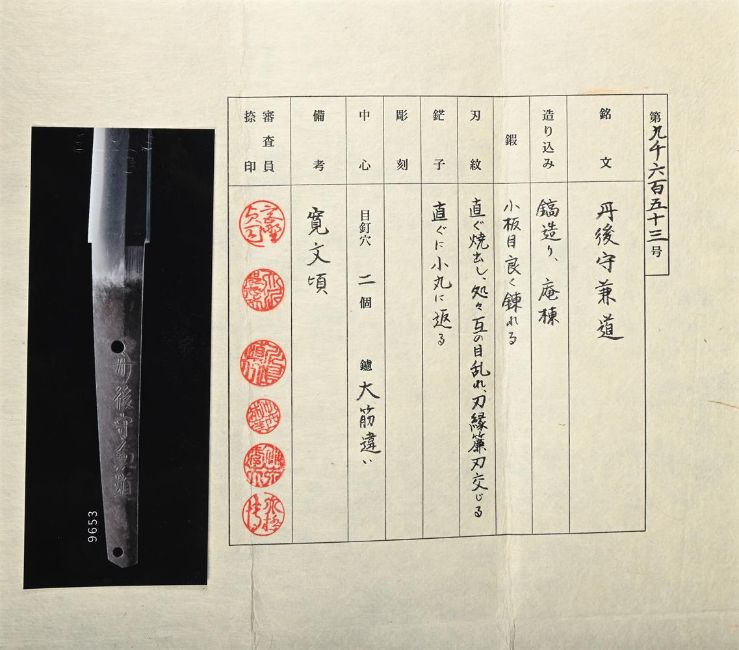 第九千六百五十三号
銘文
丹後守兼道
造り込み
鎬造り、庵棟
鍛
小板目良く錬れる
刃紋
直ぐ焼出し、処々互の目乱れ、刃縁簾刃交じる
鋩子
直ぐに小丸に返る
彫刻
中心
目釘穴 二個 鑢 大筋違い
備考
寛文頃
審査員
捺印
丹後守兼道
9653